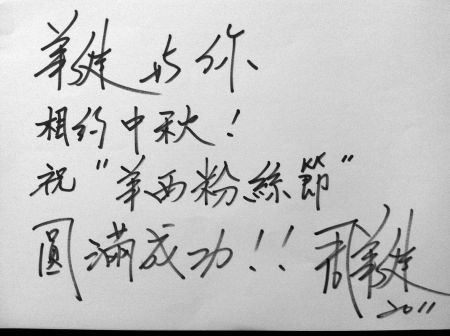 華健与你
相約中秋!
祝“華西粉絲節”
圓滿成功!! 周華健
2011